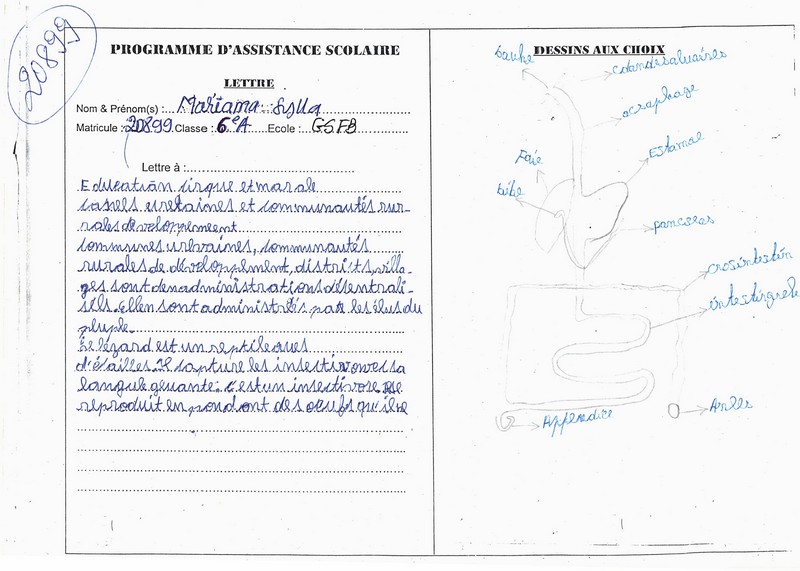 20899
PROGRAMME D'ASSISTANCE SCOLAIRE
LETTRE
Nom & Prénom(s) : Mariama Sylla
Matricule : 20899 Classe : 6e A Ecole : GSFB
Lettre à :
Education sirque et marale
et communautés rur-
rales de veloppement
communes urbaines, communautés
rurales de développement, districts, villa-
ges sont den administrations désentrali-
sils. Ellen sont administrés par les élus du
pluple.
Le lézard est un reptile aues
d'étailles. Il capture les insectivores sa
langule geuante. c'est un insectivore. se
reproduit en pondont des oeufs qu'il ne
DESSINS AUX CHOIX
bauhe
Glandesalivaires
acsaphage
Estamae
Faie
bibe
pancseas
crosintestin
intestingrele
Appendice
Anles